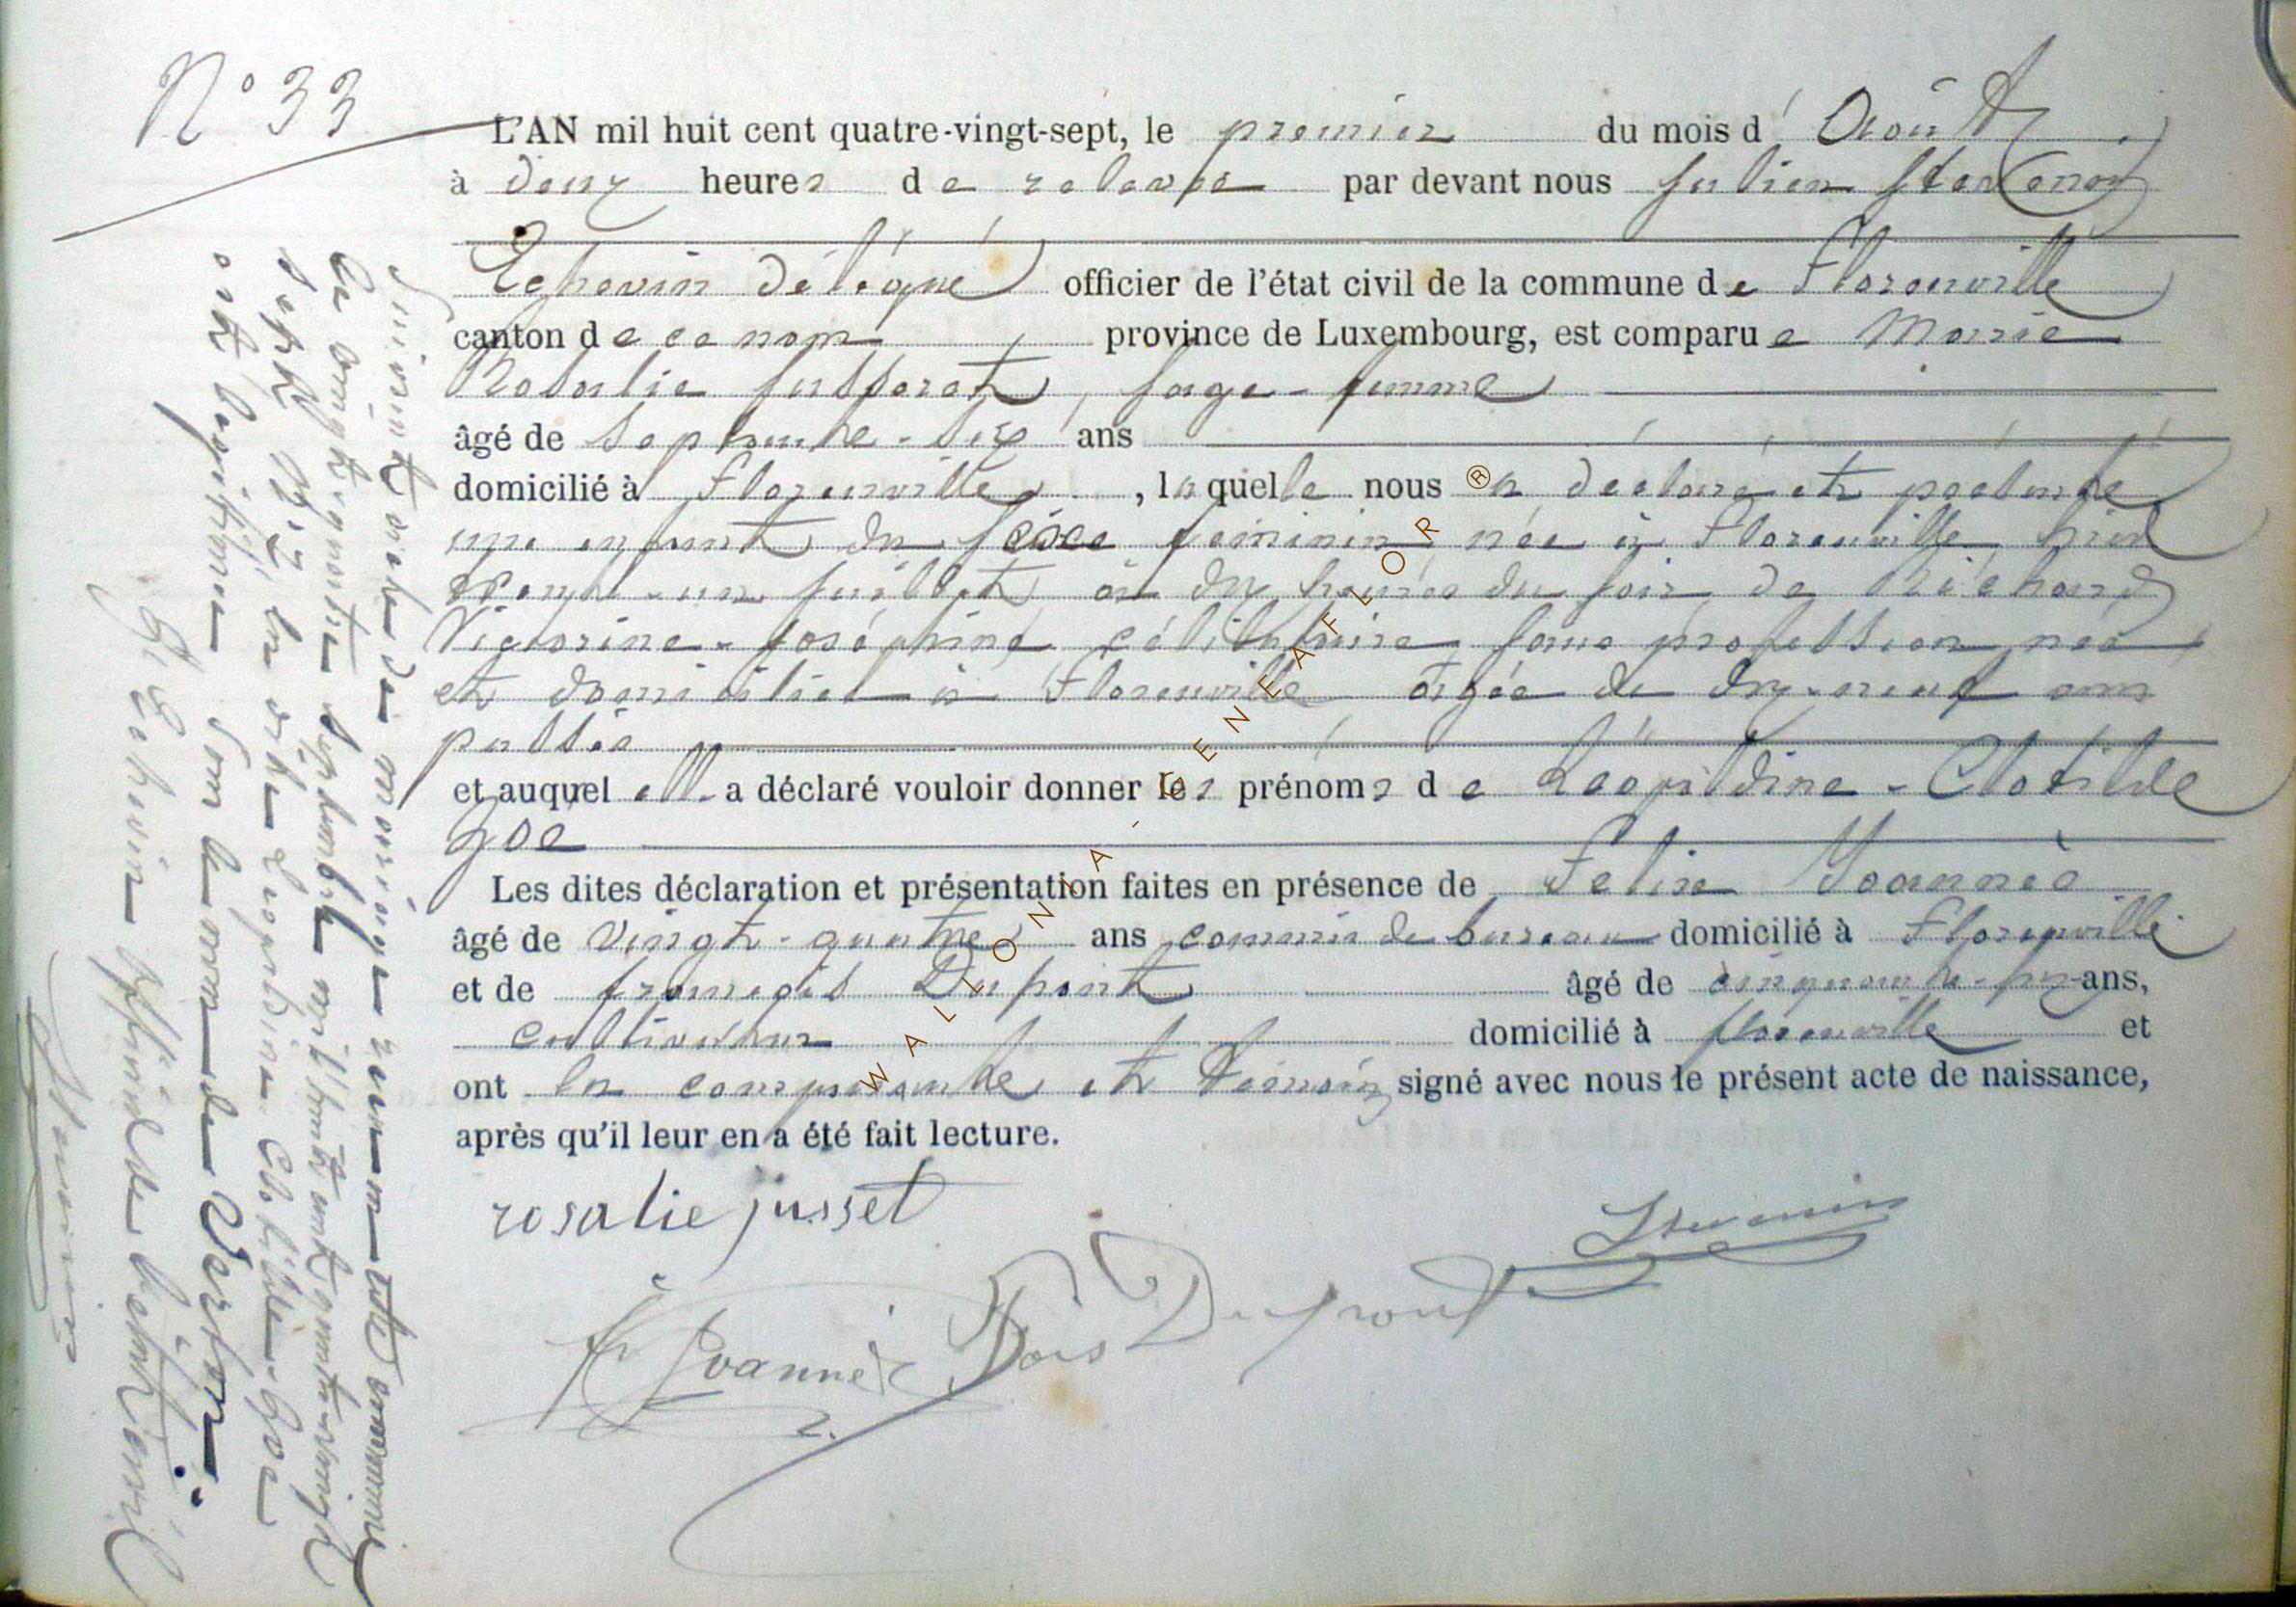 N° 33
L'AN mil huit cent quatre-vingt-sept, le premier du mois d'Août
à deux heures de relevée par devant nous Julien
Echevin délégué officier de l'état civil de la commune de Florenville
canton de ce nom, province de Luxembourg, est comparue Marie
Rosalie, sage-femme
âgé de septante-six ans
domicilié à Florenville, laquelle nous a déclaré et présenté
une enfant du sexe féminin née à Florenville, hier
trente-un juillet à dix heures du soir de Richard
Victorine-Joséphine, célibataire sans profession née
et domiciliée à Florenville âgée de dix-neuf ans
passée
et auquel elle a déclaré vouloir donner les prénoms de Léopoldine-Clotilde
Zoé
Les dites déclaration et présentation faites en présence de Felix Joannès
âgé de vingt-quatre ans commis de bureau domicilié à Florenville
et de françois Dupont âgé de cinquante-six ans,
cultivateur domicilié à florenville et
ont la comparante et témoins signé avec nous le présent acte de naissance,
après qu'il leur en a été fait lecture.
rosalie jusset
F. Joannès
Fcois Dupont
Suivant acte de mariage reçu en cette commune
le vingt-quatre septembre mil huit cent quatre-vingt
dix, la dite Léopoldine Clotilde-Zoé
est légitimée sous le nom de Verton.
L'Echevin officier de l'état civil
WALLONIA-GENEAFLOR®